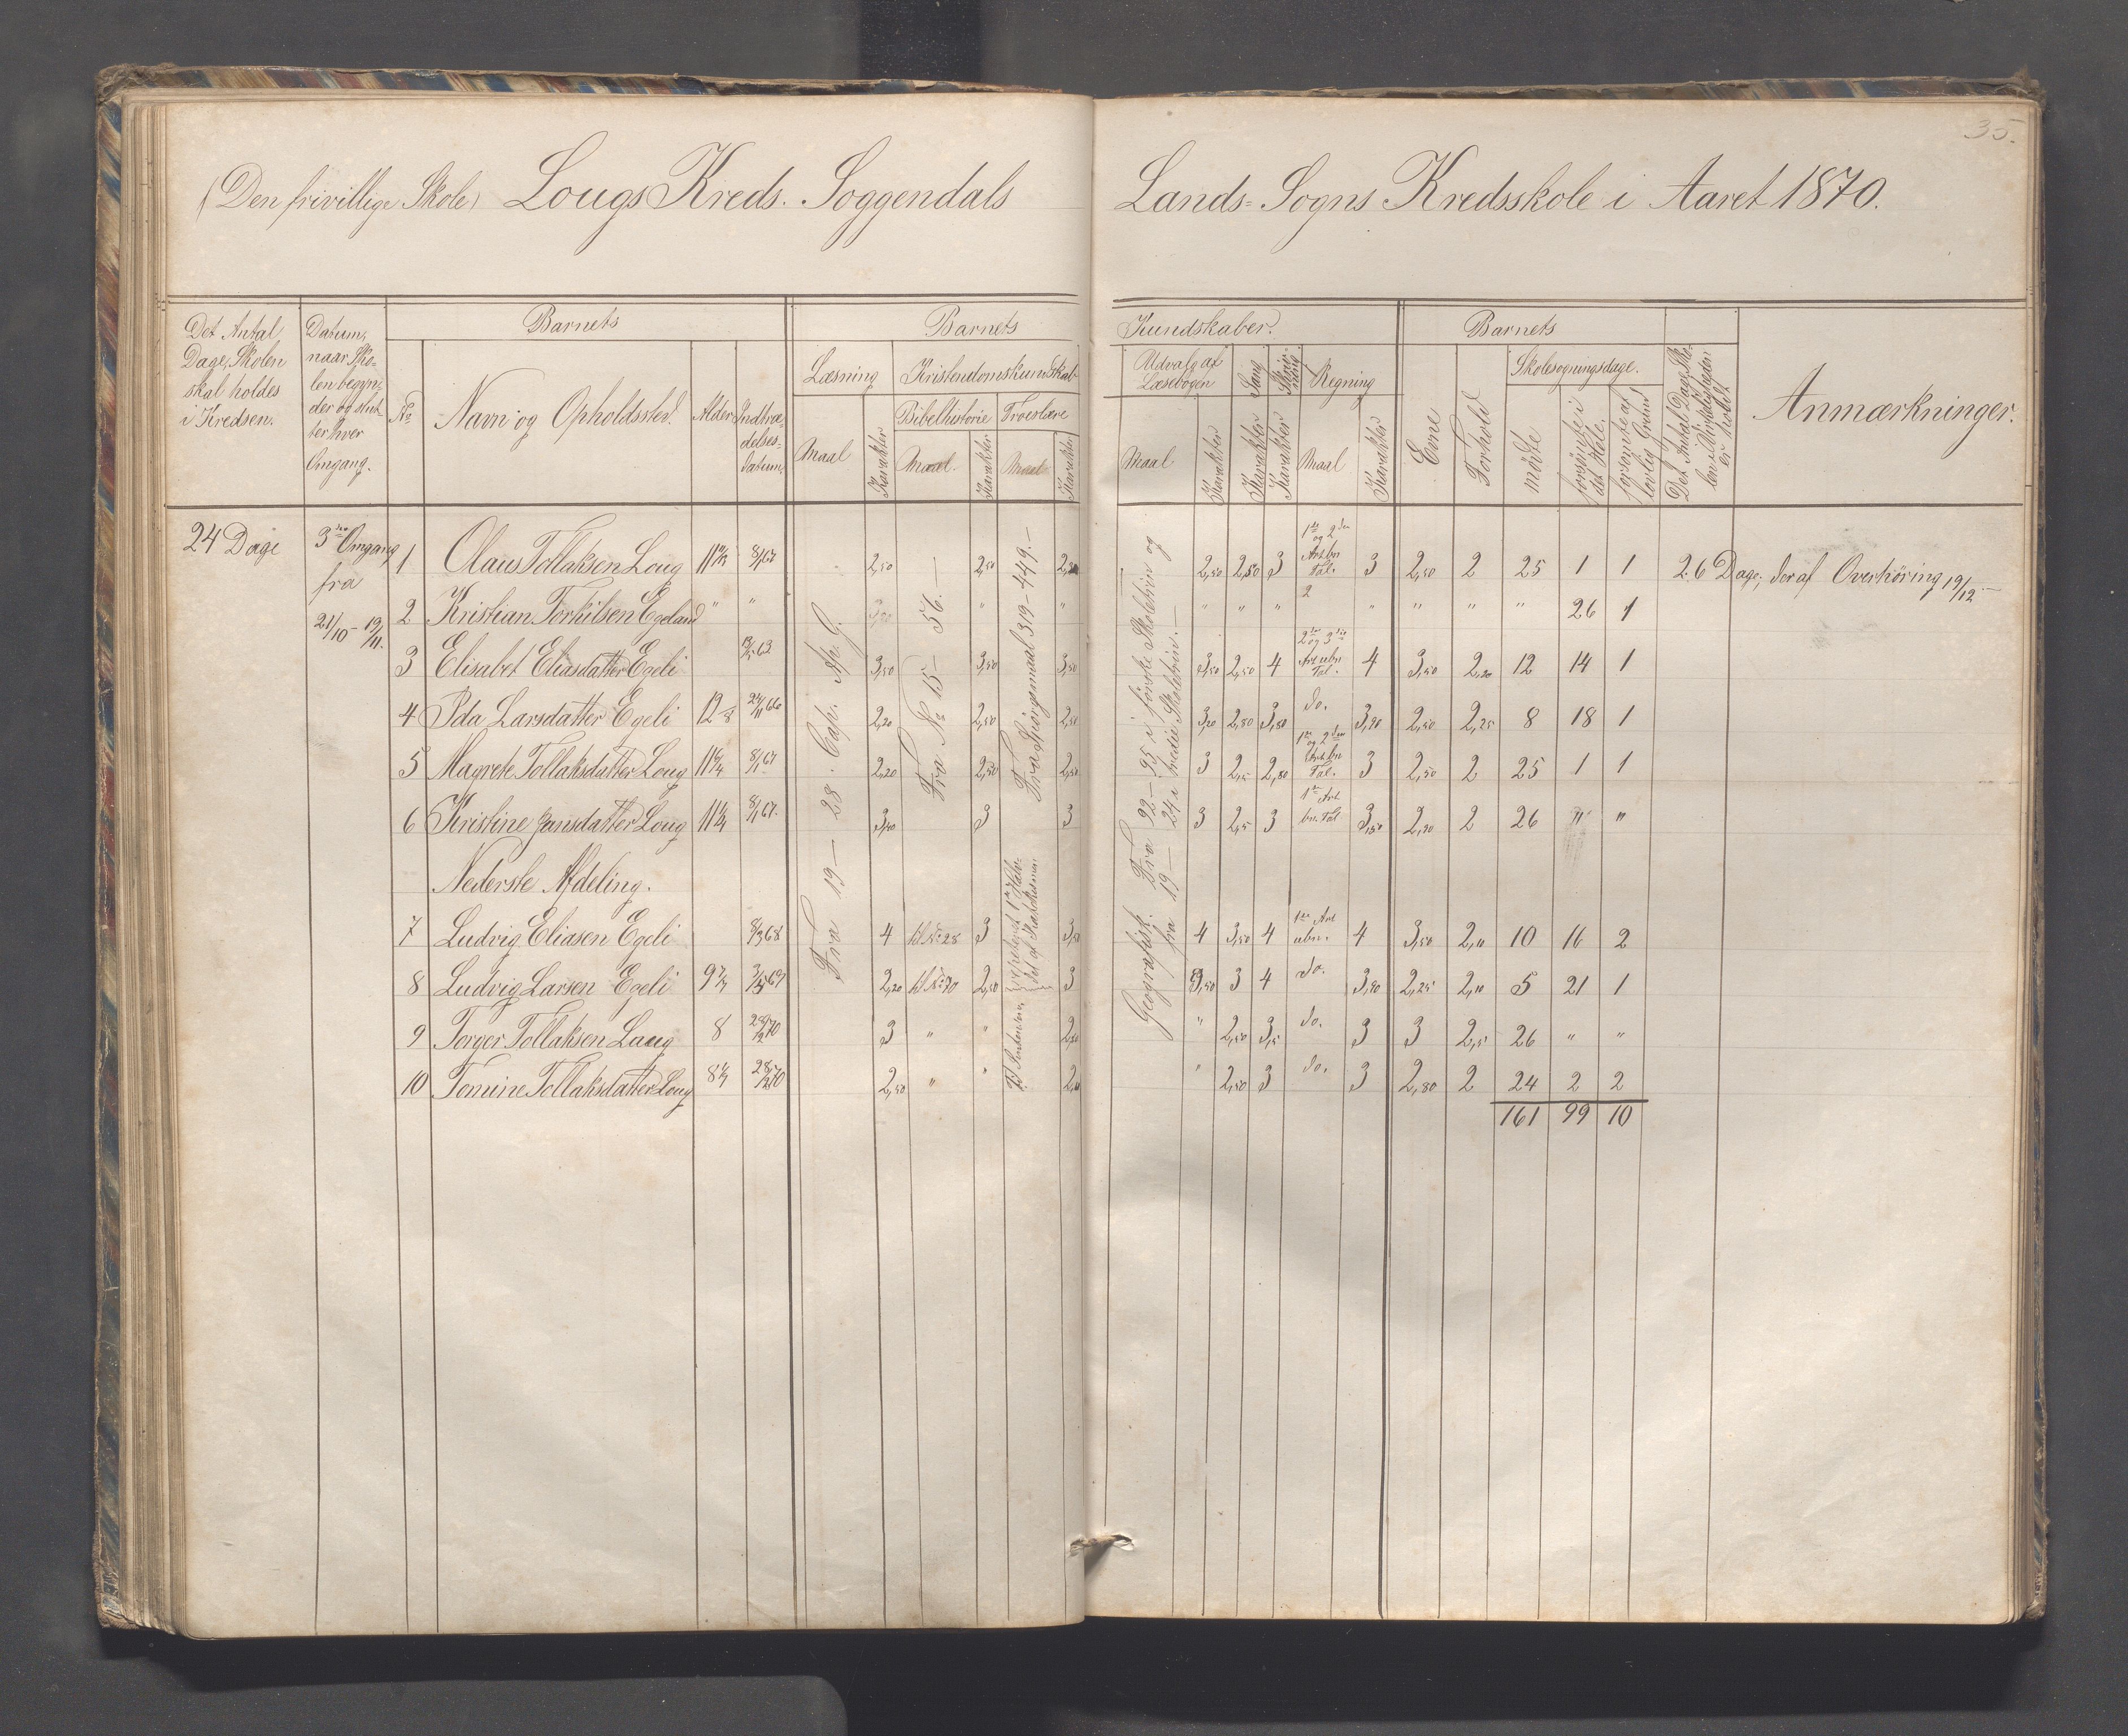 35.
(Den frivillige Skole) Lougs Kreds. Soggendals Lands-Sogns Kredsskole i Aaret 1870.
Det Antal Dage, Skolen skal holdes i Kredsen.
Datum, naar Skolen begynder og slutter hver Omgang.
Barnets
No
Navn og Opholdssted.
Alder
Indtrædelses-datum.
Barnets Kundskaber.
Læsning
Maal
Karakter
Kristendomskundskab
Bibelhistorie
Maal.
Karakter
Troeslære
Maal
Karakter
Udvalg af Læsebogen
Maal
Karakter
Sang
Karakter
Skrivning
Karakter
Regning
Maal
Karakter
Barnets
Evne
Forhold
Skolesøgningsdage.
mødte
forsømte i det Hele.
forsømte af lovlig Grund
Det Antal Dage, Skolen i Virkeligheden er holdt
Anmærkninger.
24 Dage
3die Omgang
fra
21/10 - 19/11.
Fra 19 - 28. Cap. Ap. G.
Fra No 15 - 56. -
Fra Spörgsmaal 319-449. -
Geografisk. Fra 92-95 i første Skoletrin og
fra 19 - 24 i tredie Skoletrin. -
1 Olaus Tollaksen Loug 8/1 67 2,50 2,50 2,50 2,50 3 1ste og 2den Art bn Tal. 3 2,50 2 25 1 1 26 Dage; deraf Overhöring 19/12 -
2 Kristian Torkilsen Egeland " " " " " " " 2 " " " " 26 1
3 Elisabet Eliasdatter Egeli 3,50 3,50 3,50 3,50 2,50 4 2den og 3die Art ubn Tal. 4 3,50 2,20 12 14 1
4 Ida Larsdatter Egeli 2,20 2,50 2,50 3,20 2,80 3,80 do. 3,90 2,50 2,25 8 18 1
5 Magrete Tollaksdatter Loug 8/1 67 2,20 2,50 2,50 3 2,5 2,80 1ste og 2den Art bn Tal. 3 2,50 2 25 1 1
6 Kristine Jansdatter Loug 8/1 67. 3 3 3 2,5 3 1ste Art bn. Tal 3,50 2,20 2 26 " "
Nederste Afdeling.
7 Ludvig Eliasen Egeli 8/3 68 4 til No 28 3 3,50 4 3,50 4 1ste Art ubn. 4 3,50 2,10 10 16 2
8 Ludvig Larsen Egeli 2,20 til No 70 2,50 3 3,50 3 4 do. 3,90 2,25 2,10 5 21 1
9 Torger Tollaksen Laug 8 3 " " " 2,50 3,5 do. 3 3 2,5 26 " "
10 Tomine Tollaksdatter Loug 2,50 " " " 2,50 3 do. 3 2,80 2 24 2 2
161 99 10